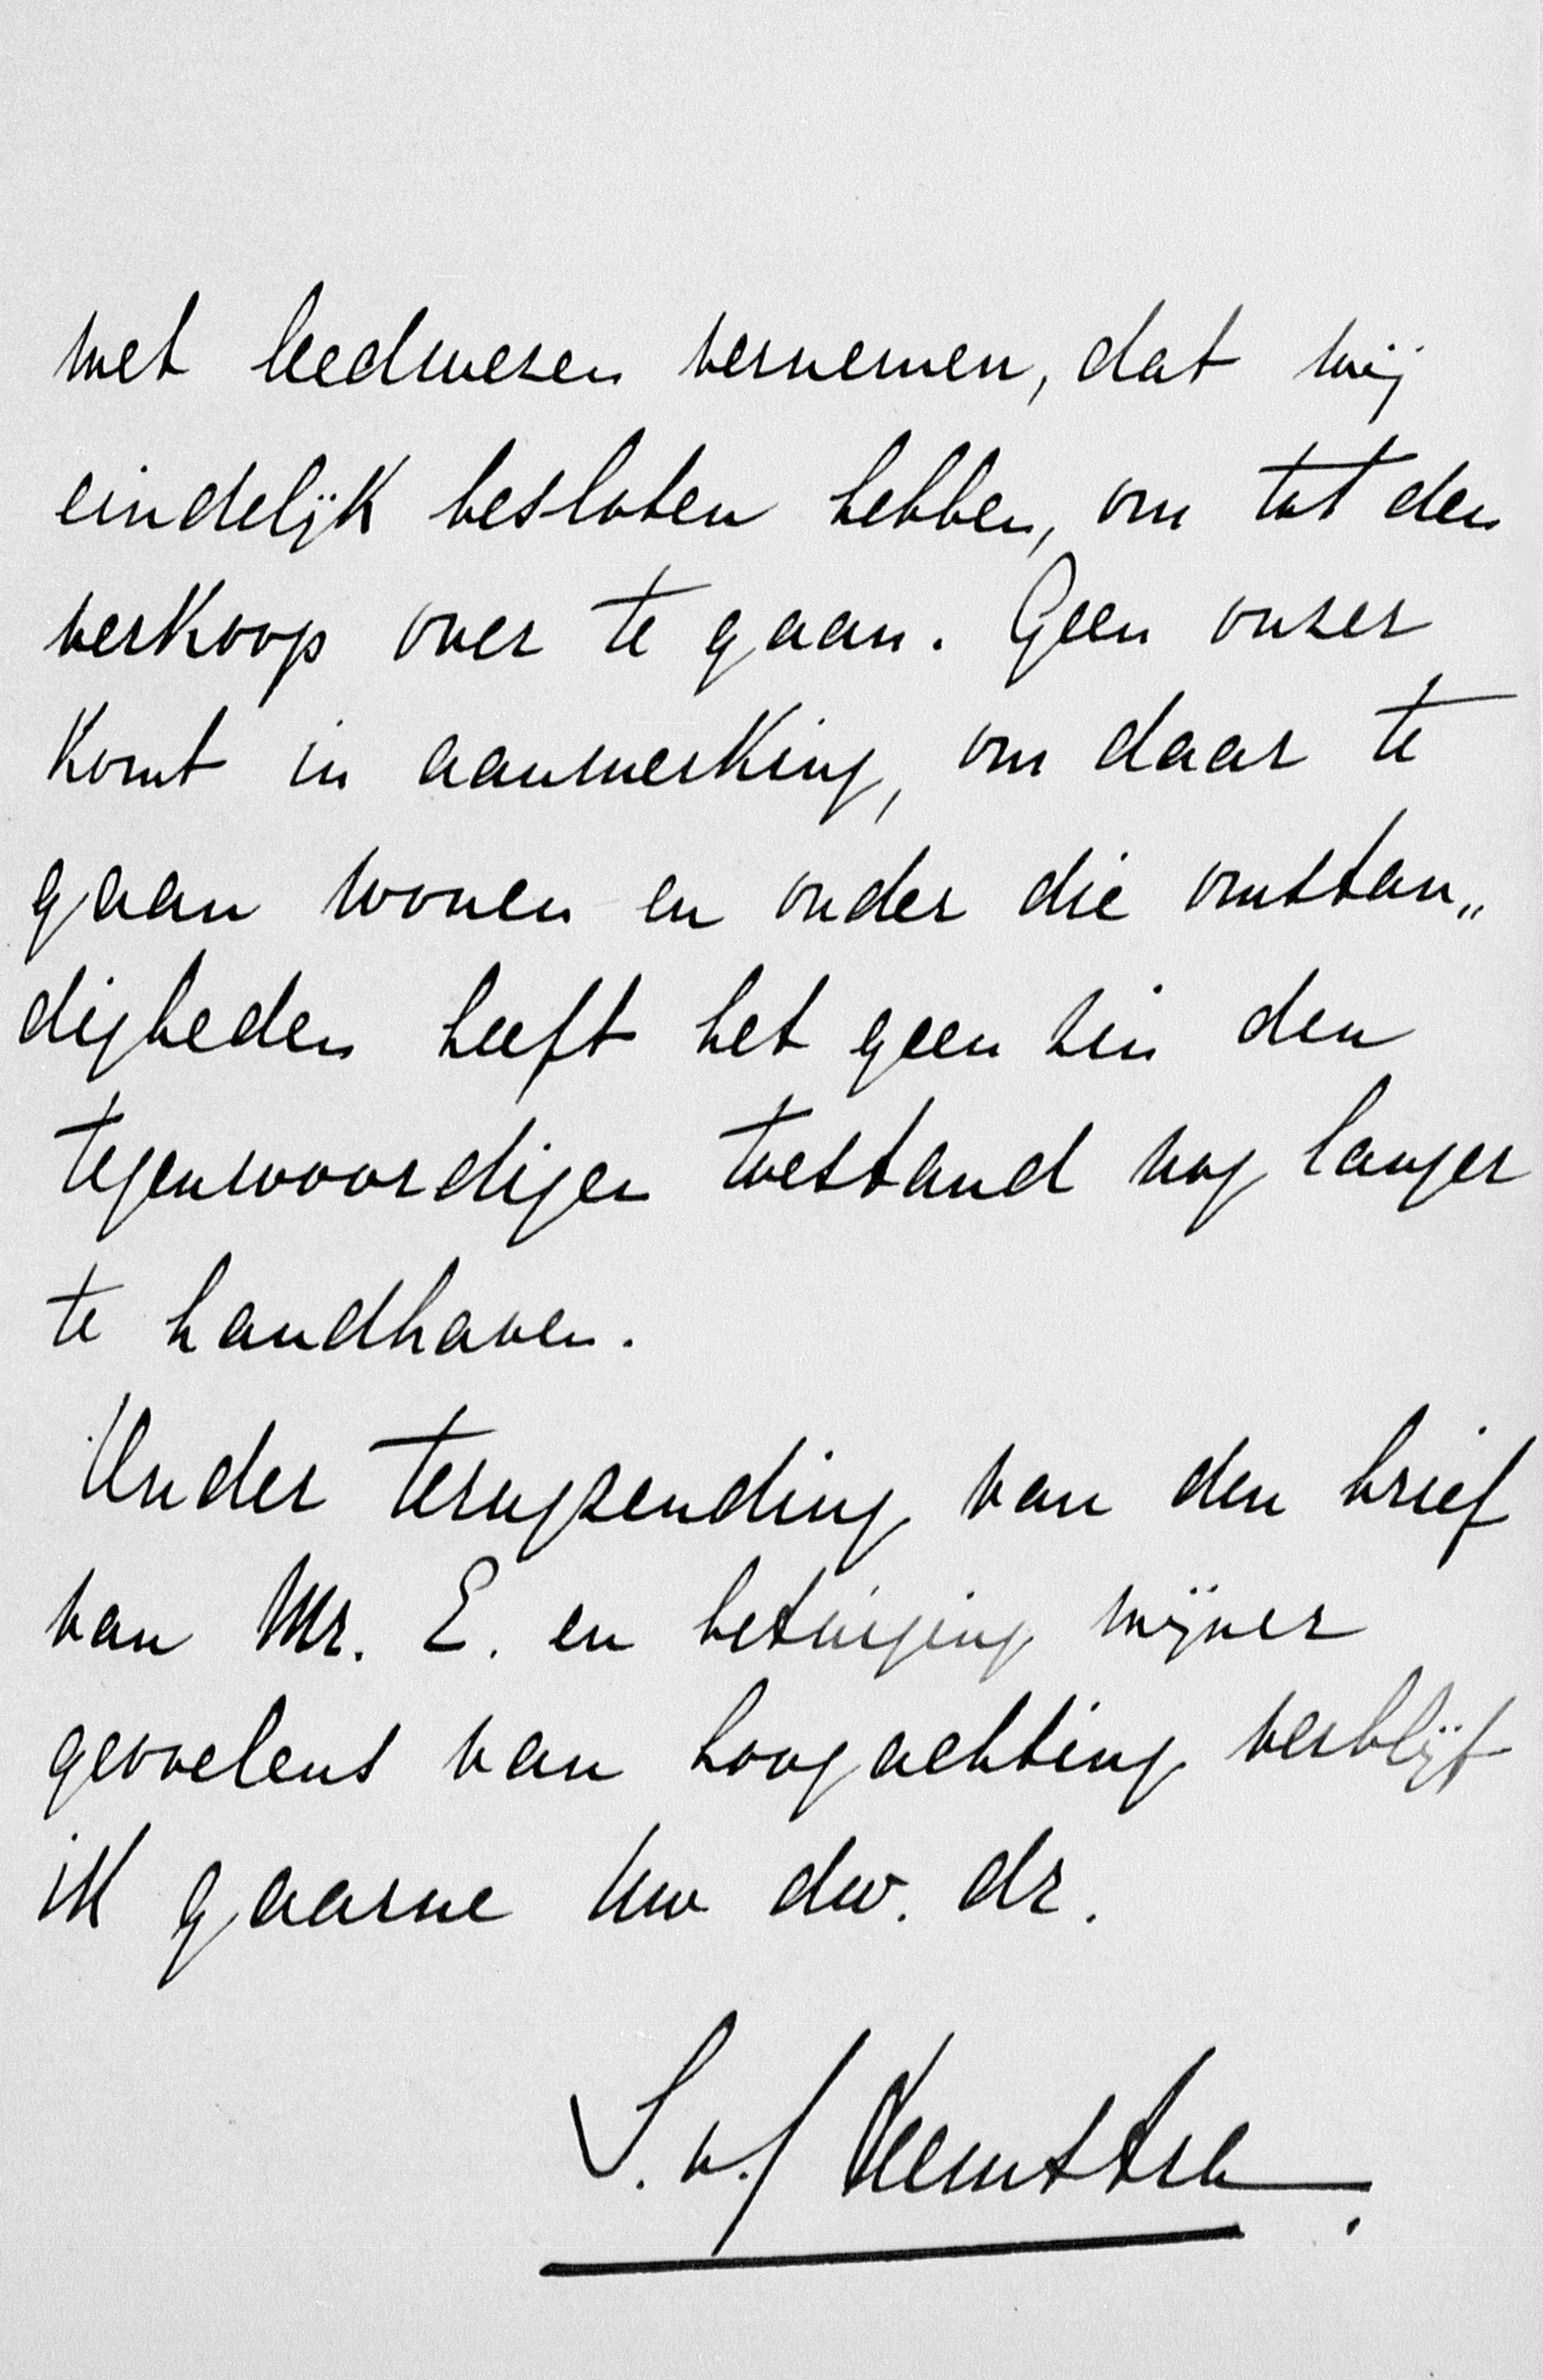 met leedwezen vernemen, dat wij
eindelijk besloten hebben, om tot den
verkoop over te gaan. Geen onzer
komt in aanmerking, om daar te
gaan wonen en onder die omstan„
digheden heeft het geen zin den
tegenwoordigen toestand nog langer
te handhaven.
Onder terugzending van den brief
van Mr. E. en betuiging mijner
gevoelens van hoogachting verblijf
ik gaarne Uw dw. dr.
S. v. Heemstra.